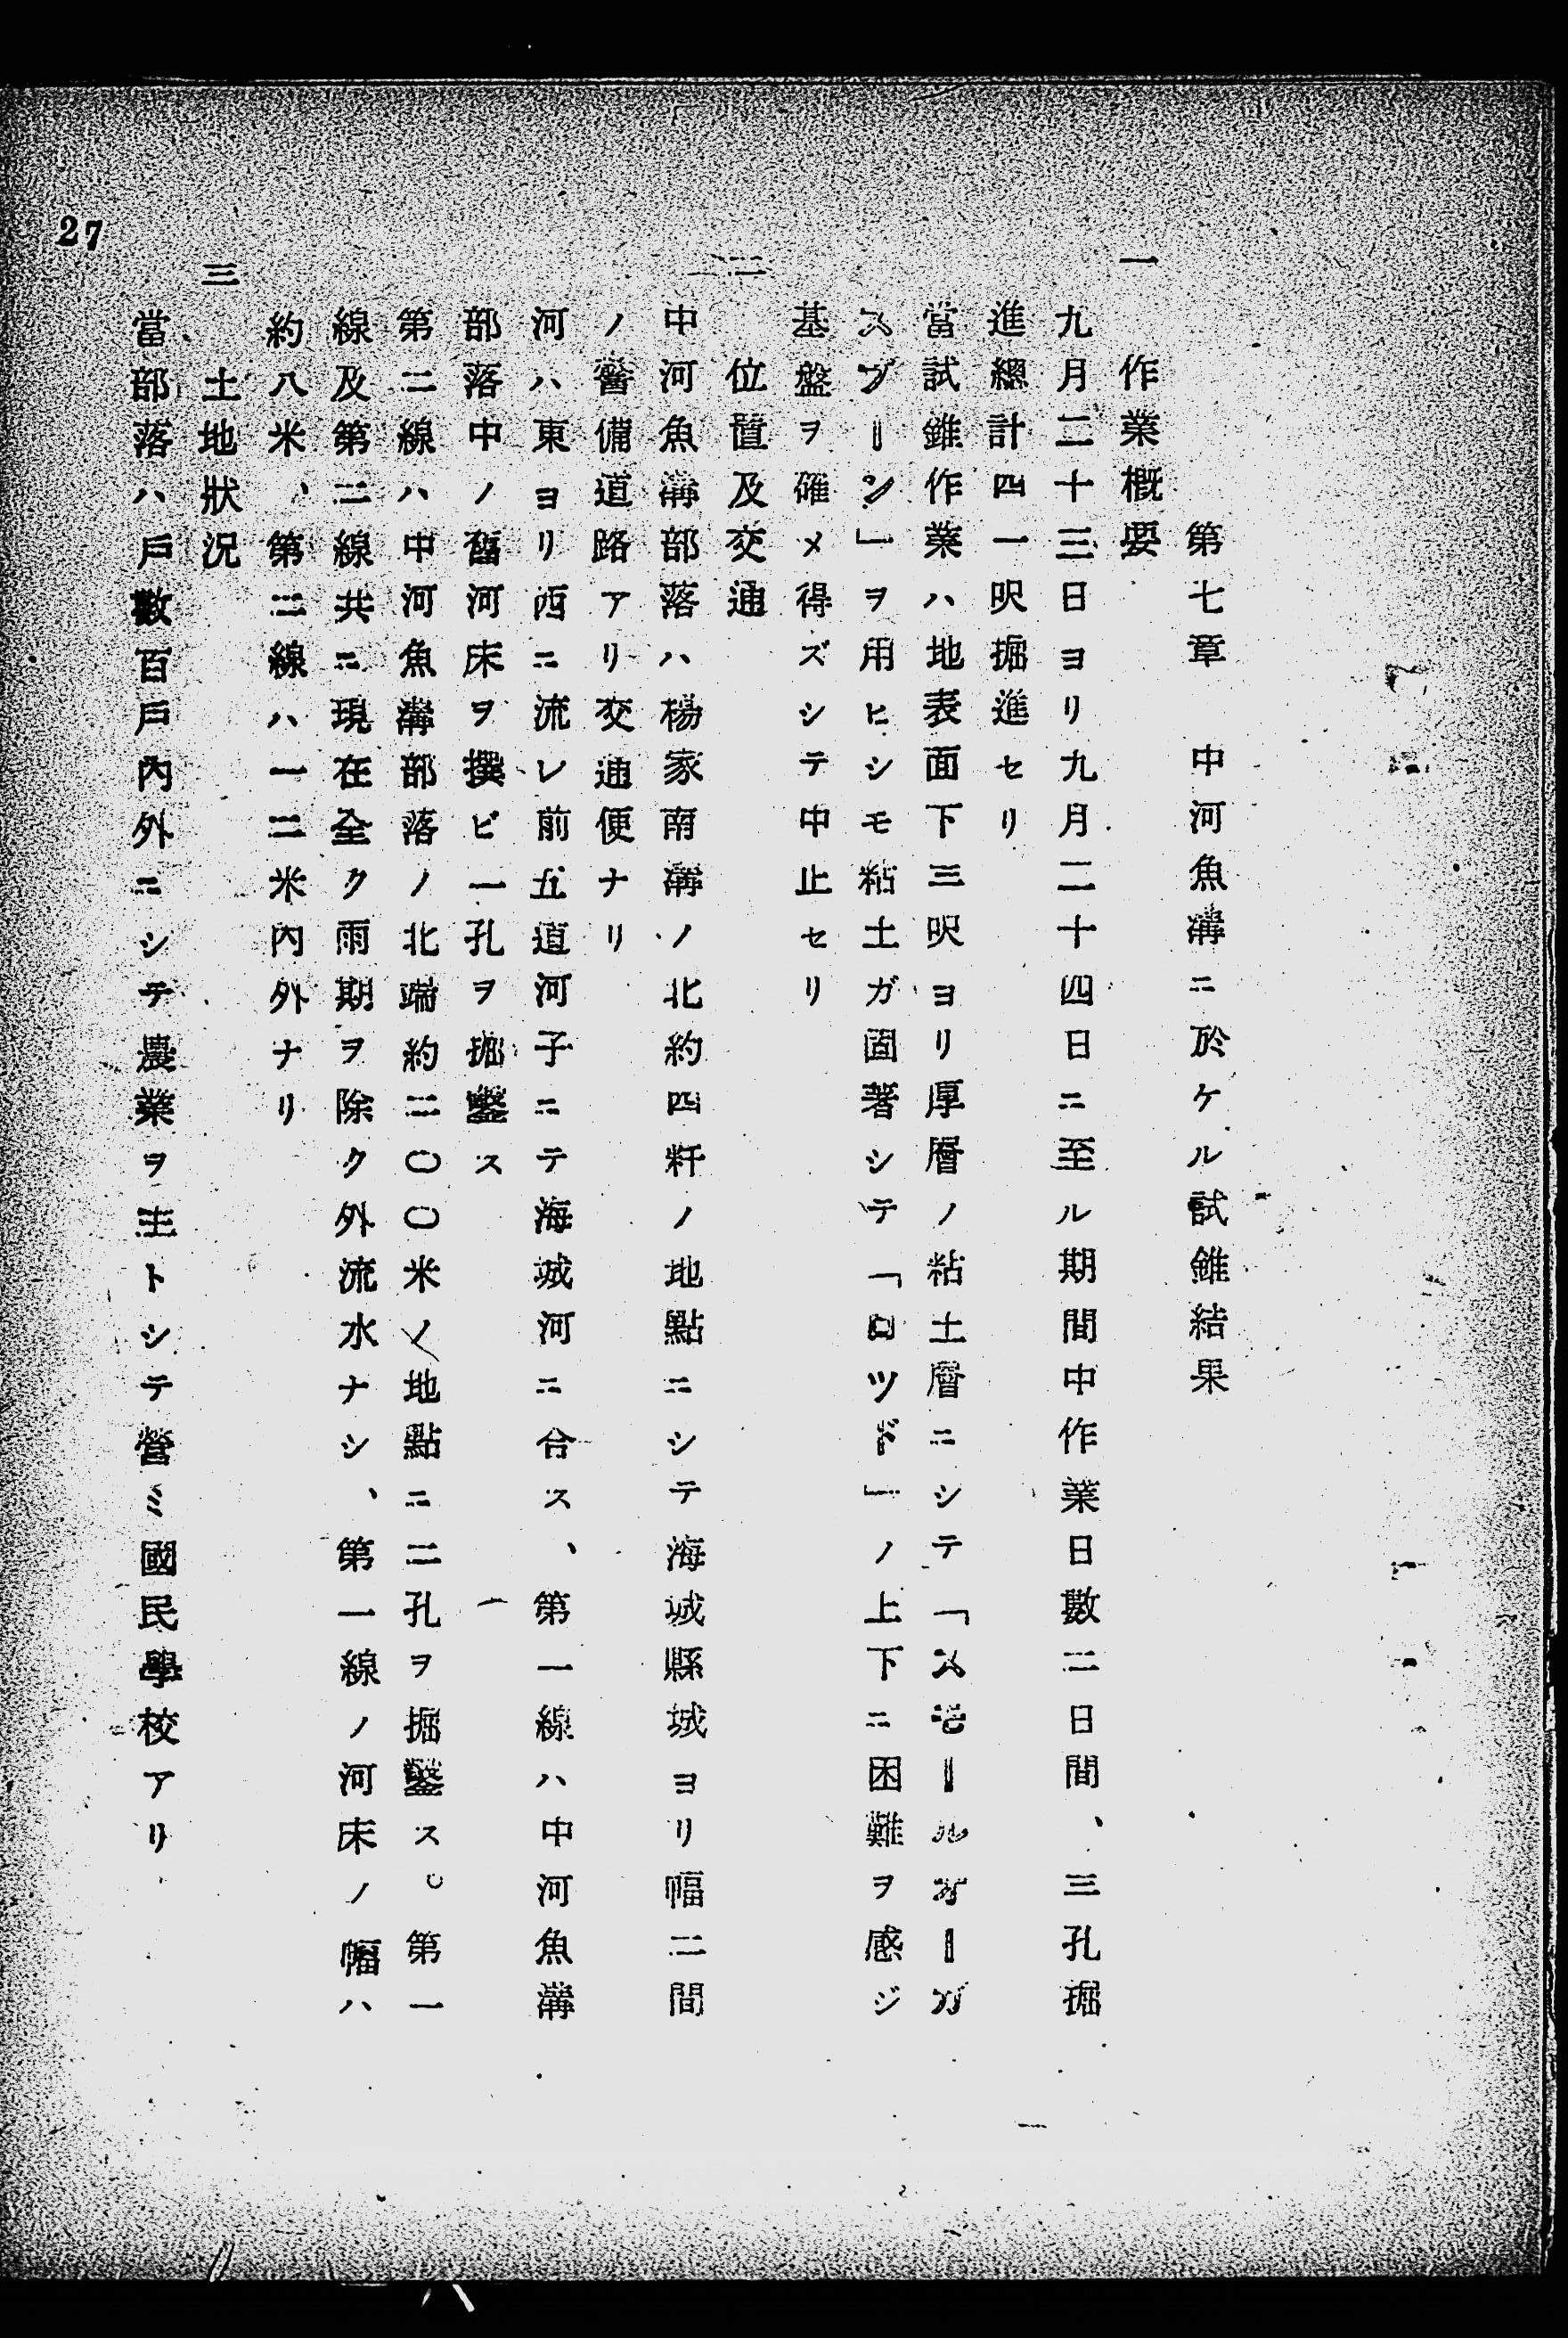 第七章　中河魚溝ニ於ケル試錐結果
一　作業概要
九月二十三日ヨリ九月二十四日ニ至ル期間中作業日數二日間、三孔掘
進總計四一呎掘進セリ
當試錐作業ハ地表面下三呎ヨリ厚層ノ粘土層ニシテ「スモールオーガ
スプーン」ヲ用ヒシモ粘土ガ固著シテ「ロツド」ノ上下ニ困難ヲ感ジ
基盤ヲ確メ得ズシテ中止セリ
二　位置及交通
中河魚溝部落ハ楊家南溝ノ北約四粁ノ地點ニシテ海城縣城ヨリ幅二間
ノ警備道路アリ交通便ナリ
河ハ東ヨリ西ニ流レ前五道河子ニテ海城河ニ合ス、第一線ハ中河魚溝
部落中ノ舊河床ヲ撰ビ一孔ヲ掘鑿ス
第二線ハ中河魚溝部落ノ北端約二〇〇米ノ地點ニ二孔ヲ掘鑿ス。第一
線及第二線共ニ現在全ク雨期ヲ除ク外流水ナシ、第一線ノ河床ノ幅ハ
約八米、第二線ハ一二米內外ナリ
三　土地狀況
當部落ハ戶數百戶內外ニシテ農業ヲ主トシテ營ミ國民學校アリ
27